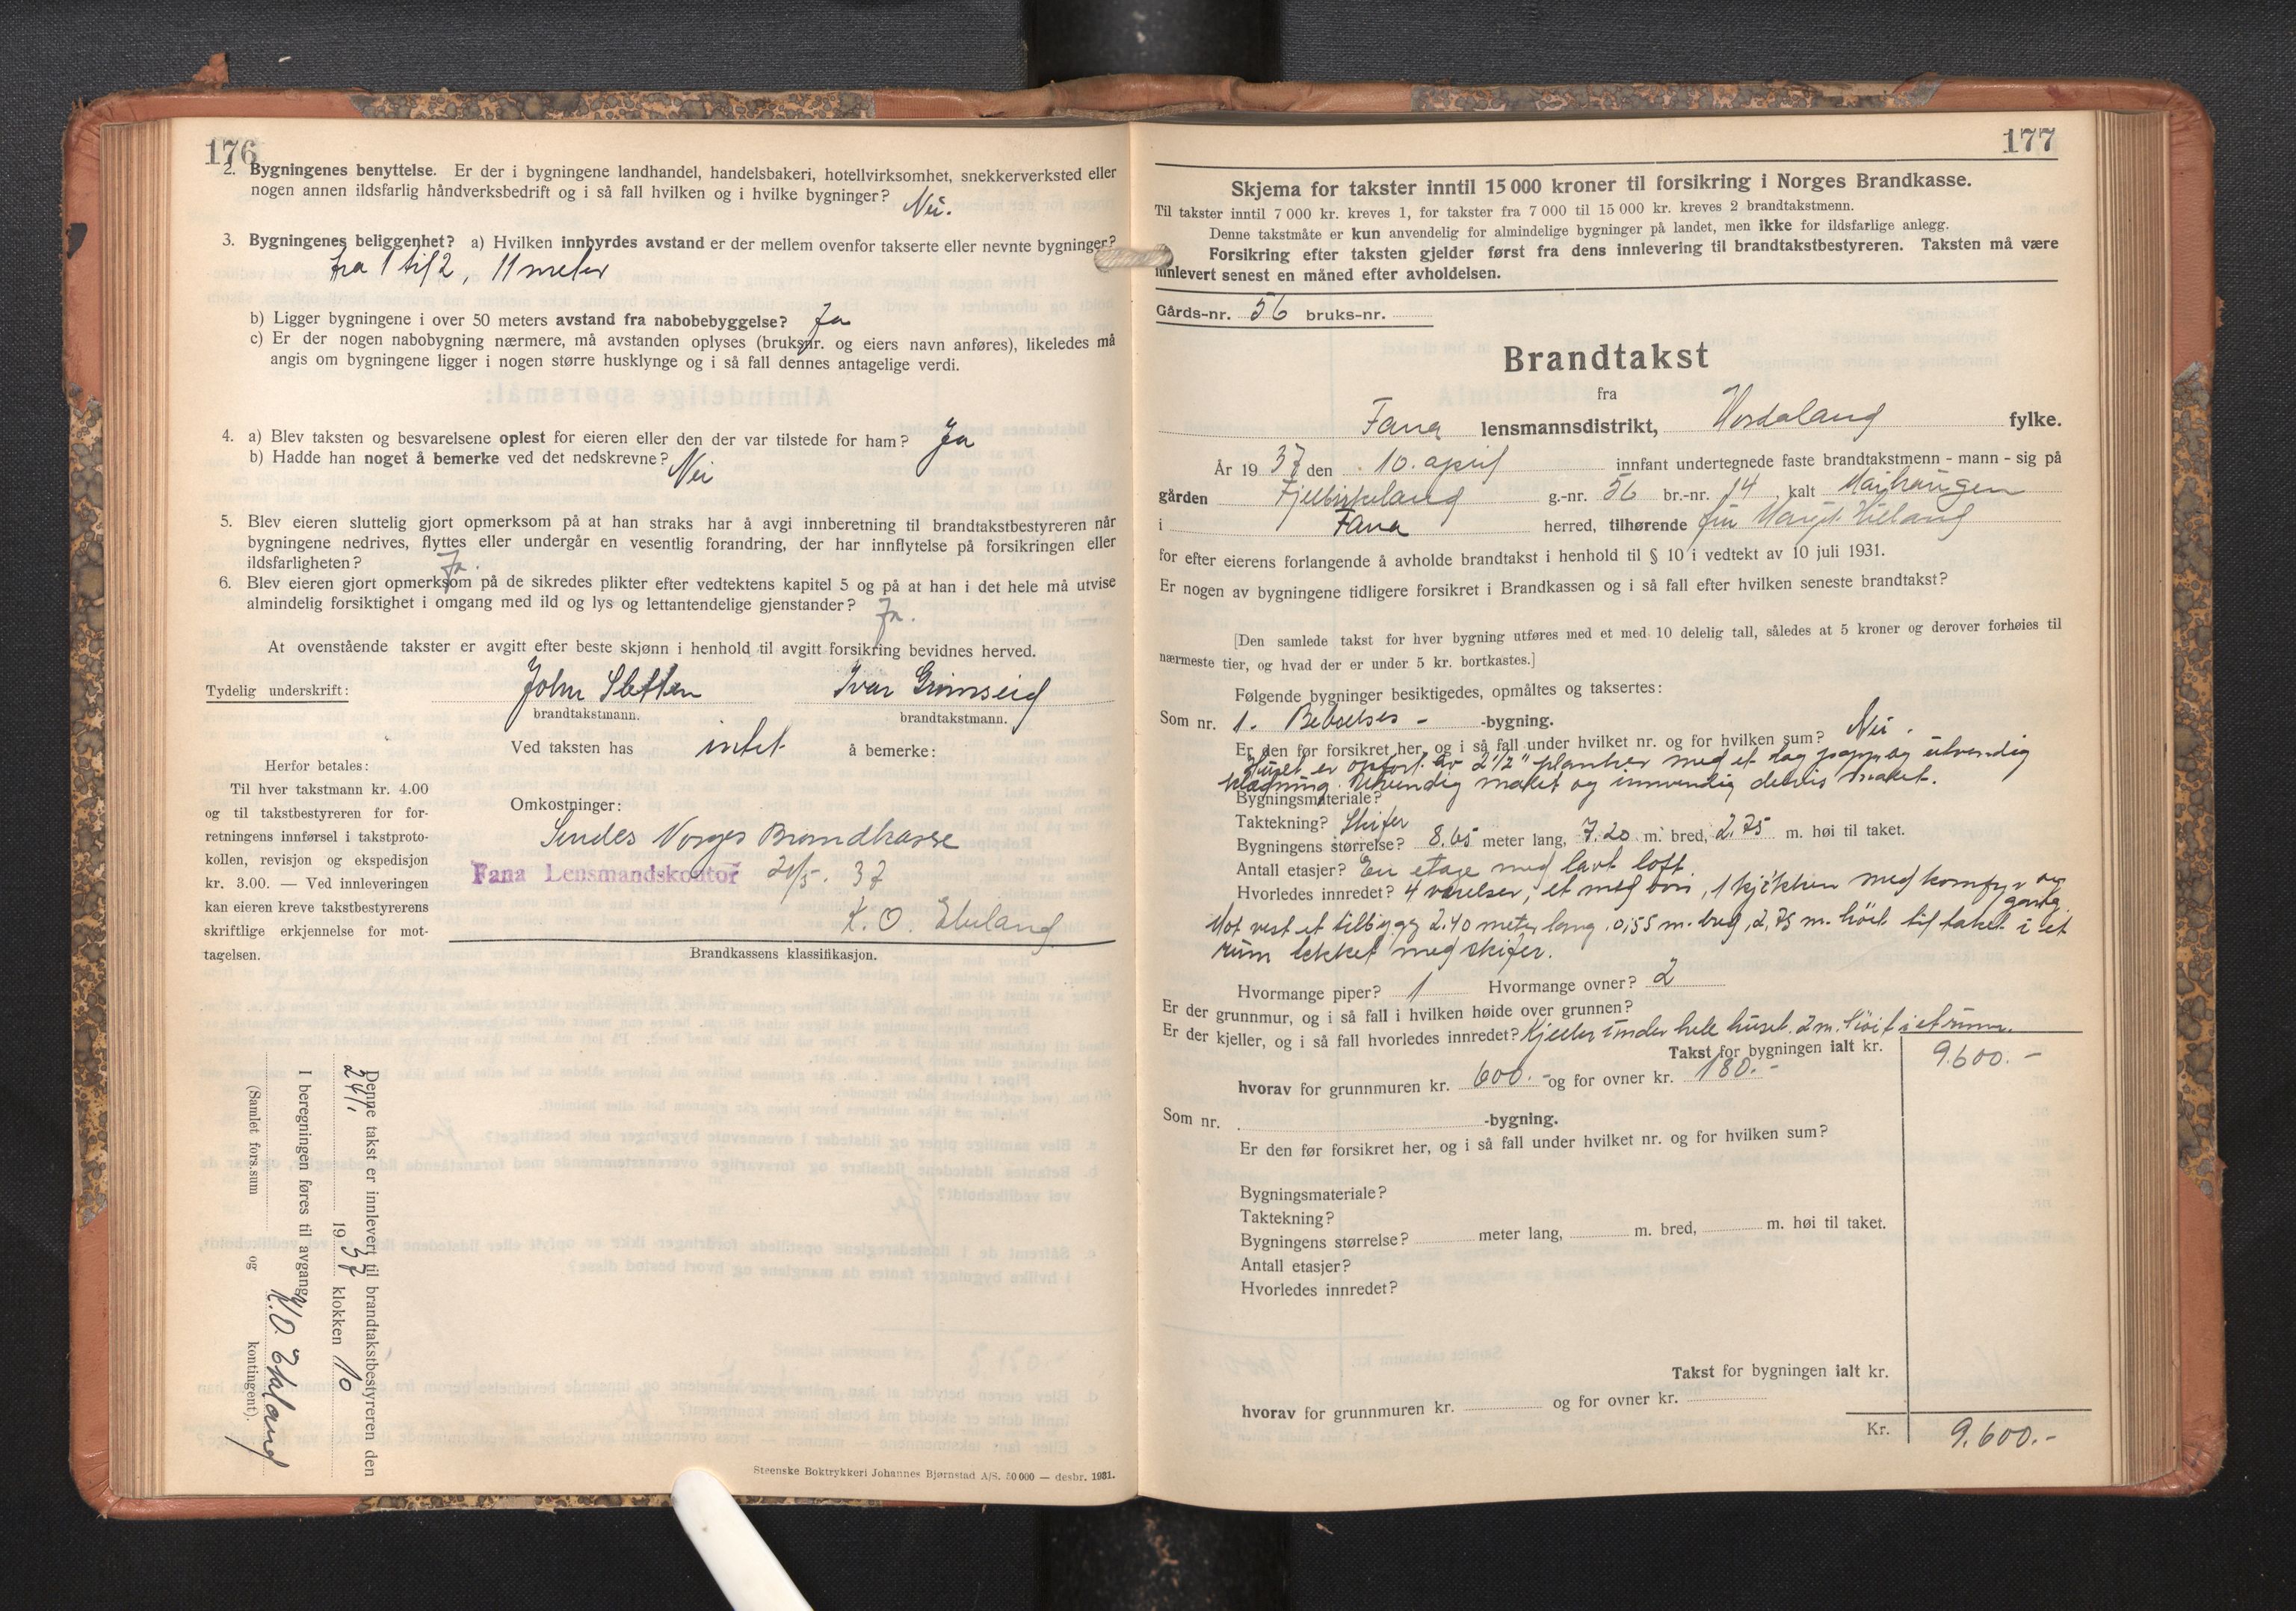 176
2. Bygningenes benyttelse. Er der i bygningene landhandel, handelsbakeri, hotellvirksomhet, snekkerverksted eller
nogen annen ildsfarlig håndverksbedrift og i så fall hvilken og i hvilke bygninger? Nei.
3. Bygningenes beliggenhet? a) Hvilken innbyrdes avstand er der mellem ovenfor takserte eller nevnte bygninger?
fra 1 til 2, 11 meter
b) Ligger bygningene i over 50 meters avstand fra nabobebyggelse? Ja
c) Er der nogen nabobygning nærmere, må avstanden oplyses (bruksnr. og eiers navn anføres), likeledes må
angis om bygningene ligger i nogen større husklynge og i så fall dennes antagelige verdi.
4. a) Blev taksten og besvarelsene oplest for eieren eller den der var tilstede for ham? Ja
b) Hadde han noget å bemerke ved det nedskrevne? Nei
5. Blev eieren sluttelig gjort opmerksom på at han straks har å avgi innberetning til brandtakstbestyreren når
bygningene nedrives, flyttes eller undergår en vesentlig forandring, der har innflytelse på forsikringen eller
ildsfarligheten? Ja.
6. Blev eieren gjort opmerksom på de sikredes plikter efter vedtektens kapitel 5 og på at han i det hele må utvise
almindelig forsiktighet i omgang med ild og lys og lettantendelige gjenstander? Ja.
At ovenstående takster er avgitt efter beste skjønn i henhold til avgitt forsikring bevidnes herved.
Tydelig underskrift: John Sletten Ivar Grimseid
brandtakstmann. brandtakstmann.
Ved taksten has intet å bemerke:
Herfor betales:
Til hver takstmann kr. 4.00
og til takstbestyreren for for-
retningens innførsel i takstproto-
kollen, revisjon og ekspedisjon
kr. 3.00. — Ved innleveringen
kan eieren kreve takstbestyrerens
skriftlige erkjennelse for mot-
tagelsen.
Omkostninger:
Sendes Norges Brandkasse
Fana Lensmandskontor 20/5. 37
K. O. Eheland
Brandkassens klassifikasjon.
Denne takst er innlevert til brandtakstbestyreren den
24/1 1937 klokken 10
I beregningen føres til avgang
K. O.
(Samlet fors.sum og kontingent).
Steenske Boktrykkeri Johannes Bjørnstad A/S. 50 000 — desbr. 1931.
177
Skjema for takster inntil 15 000 kroner til forsikring i Norges Brandkasse.
Til takster inntil 7 000 kr. kreves 1, for takster fra 7 000 til 15 000 kr. kreves 2 brandtakstmenn.
Denne takstmåte er kun anvendelig for almindelige bygninger på landet, men ikke for ildsfarlige anlegg.
Forsikring efter taksten gjelder først fra dens innlevering til brandtakstbestyreren. Taksten må være
innlevert senest en måned efter avholdelsen.
Gårds-nr. 56 bruks-nr.
Brandtakst
fra
Fana lensmannsdistrikt, Hordaland fylke.
År 1937 den 10. april innfant undertegnede faste brandtakstmenn - mann - sig på
gården Fjellbirkeland g.-nr. 56 br.-nr. 14 kalt
i Fana herred, tilhørende fru
for efter eierens forlangende å avholde brandtakst i henhold til § 10 i vedtekt av 10 juli 1931.
Er nogen av bygningene tidligere forsikret i Brandkassen og i så fall efter hvilken seneste brandtakst?
[Den samlede takst for hver bygning utføres med et med 10 delelig tall, således at 5 kroner og derover forhøies til
nærmeste tier, og hvad der er under 5 kr. bortkastes.]
Følgende bygninger besiktigedes, opmåltes og taksertes:
Som nr. 1. Beboelses - -bygning.
Er den før forsikret her, og i så fall under hvilket nr. og for hvilken sum? Nei.
Huset er opført av 2 1/2" planker med et lag papp og utvendig
klædning. Utvendig malet og innvendig delvis malet.
Bygningsmateriale?
Taktekning? Skifer
Bygningens størrelse? 8.65 meter lang, 7.20 m. bred, 2.75 m. høi til taket.
Antall etasjer? En etage med lavt loft.
Hvorledes innredet? 4 værelser, et med ovn, 1 kjøkken med komfyr og
gang.
Mot vest et tilbygg 2.40 meter lang 0,55 m. bred, 2,75 m. höit til taket i et
rum tekket med skifer.
Hvormange piper? 1 Hvormange ovner? 2
Er der grunnmur, og i så fall i hvilken høide over grunnen?
Er der kjeller, og i så fall hvorledes innredet? Kjeller under hele huset. 2 m. höit i et rum.
Takst for bygningen ialt kr. 9.600.-
hvorav for grunnmuren kr. 600.- og for ovner kr. 180.-
Som nr. -bygning.
Er den før forsikret her, og i så fall under hvilket nr. og for hvilken sum?
Bygningsmateriale?
Taktekning?
Bygningens størrelse? meter lang, m. bred, m. høi til taket.
Antall etasjer?
Hvorledes innredet?
Takst for bygningen ialt kr.
hvorav for grunnmuren kr. og for ovner kr.
Kr. 9.600.-